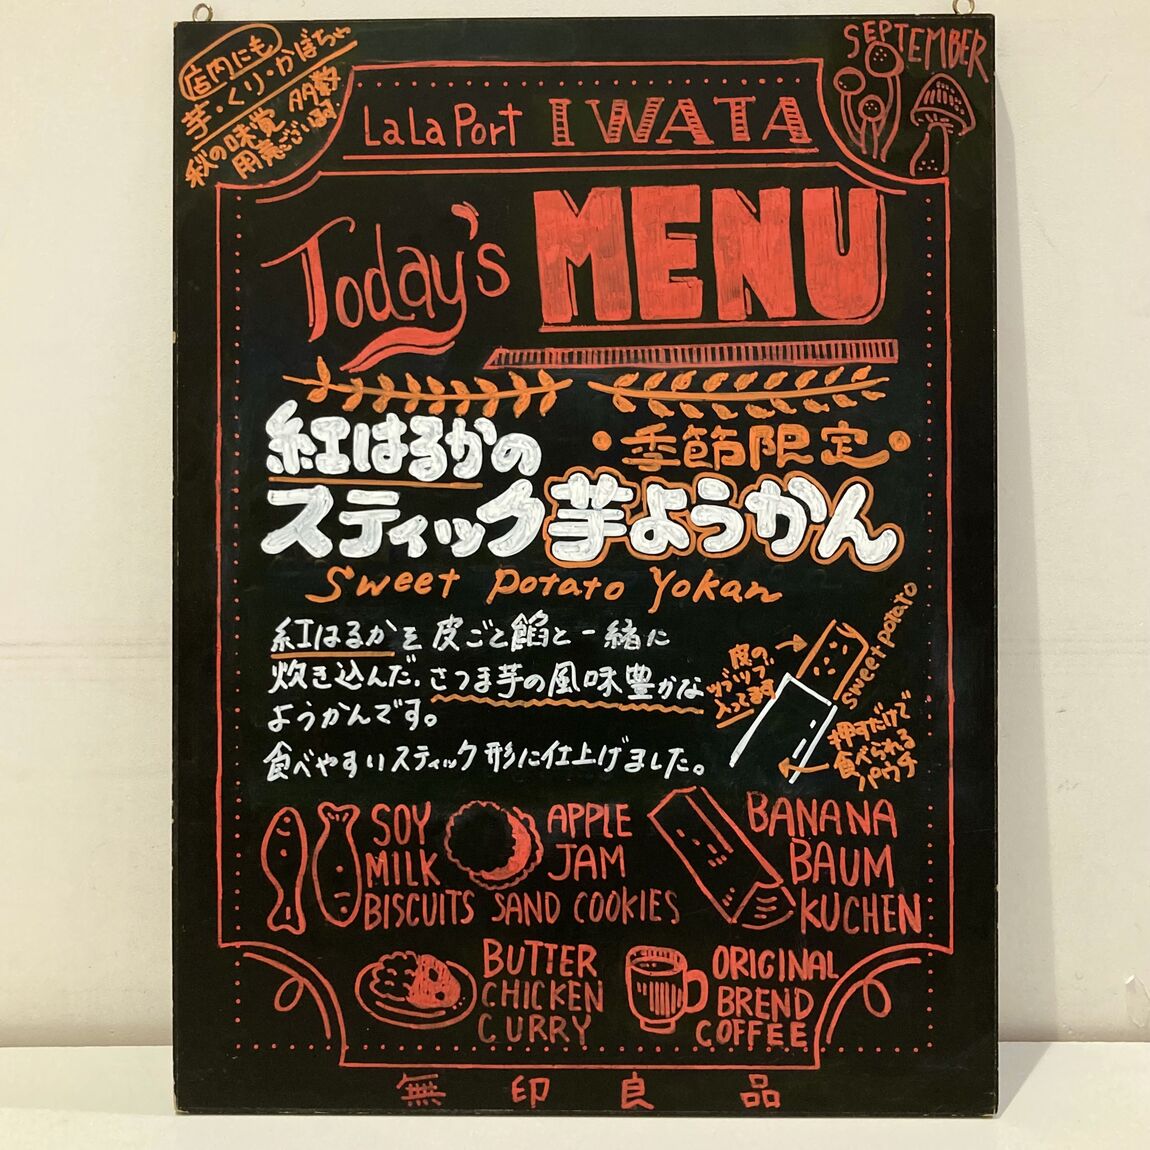 店内にも
芋・くり・かぼちゃ
秋の味覚、多数
用意ござい〼
SEPTEMBER
LaLaPort IWATA
Today's MENU
紅はるかの
・季節限定・
スティック芋ようかん
Sweet Potato Yokan
紅はるかを皮ごと餡と一緒に
炊き込んだ、さつま芋の風味豊かな
ようかんです。
食べやすいスティック形に仕上げました。
皮の
ツブツブ
入ってます
sweet potato
押すだけで
食べられる
パウチ
SOY
MILK
BISCUITS
APPLE
JAM
SAND COOKIES
BANANA
BAUM
KUCHEN
BUTTER
CHICKEN
CURRY
ORIGINAL
BREND
COFFEE
無印良品